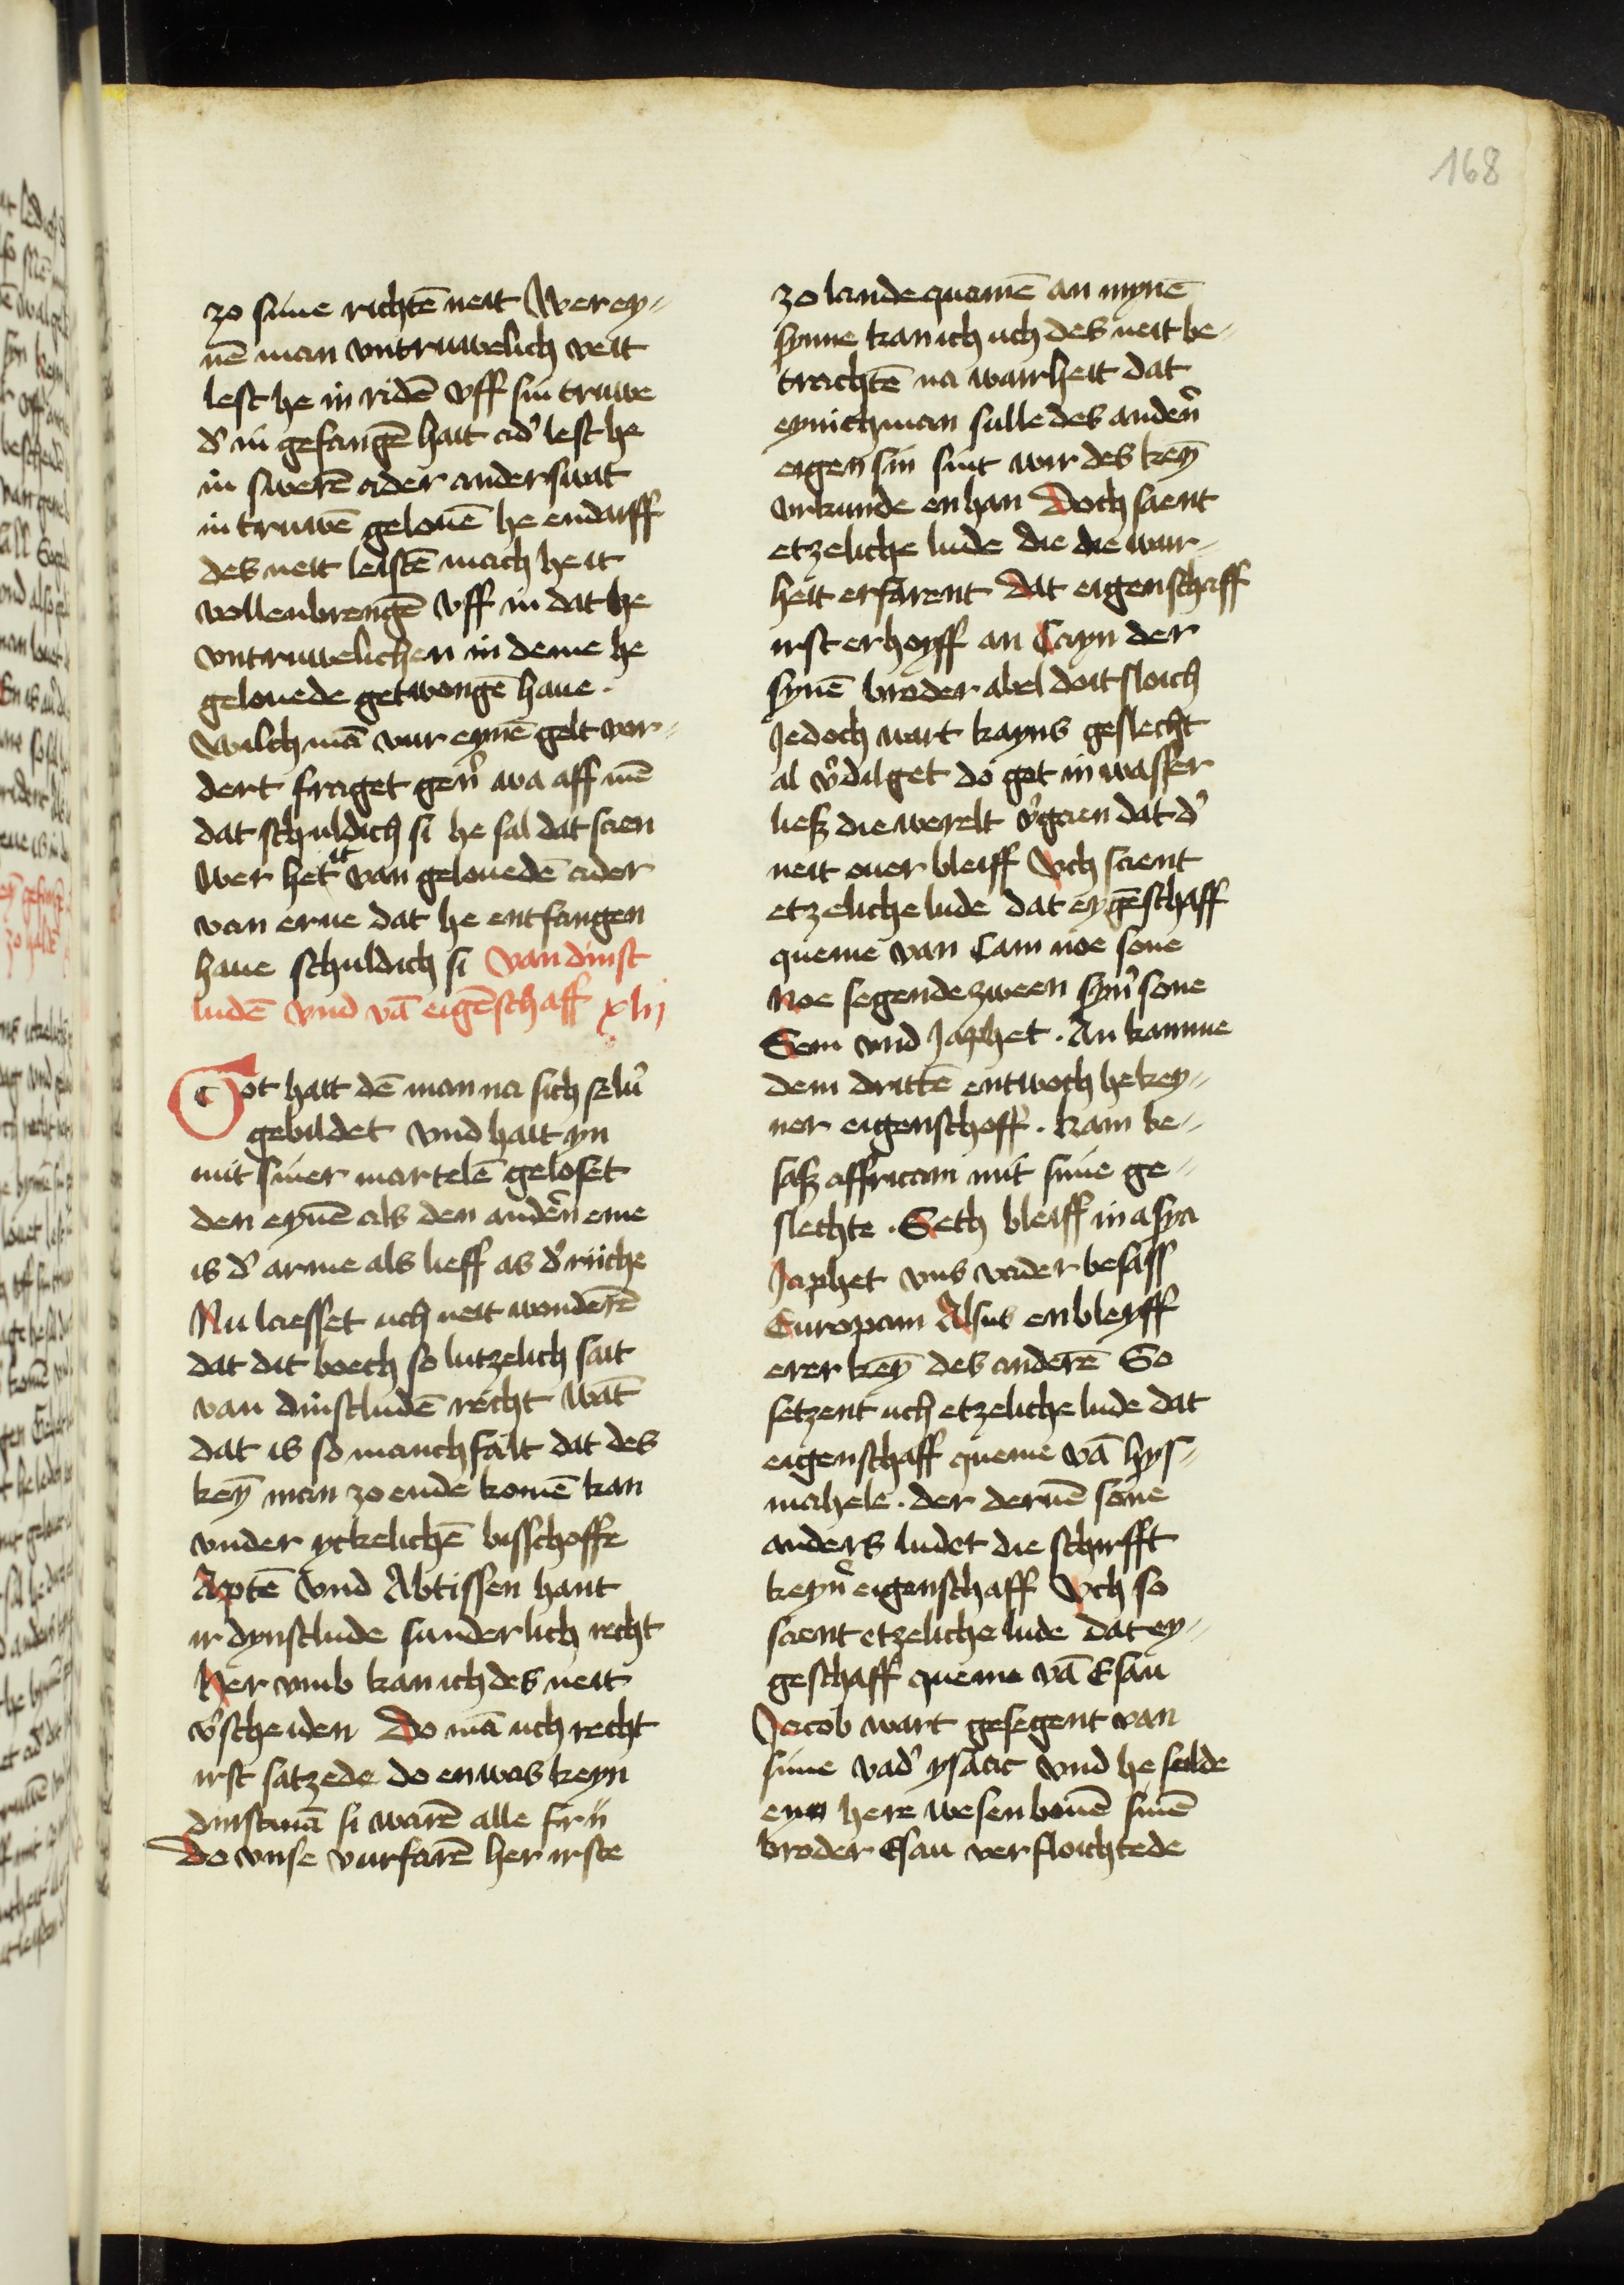 168
zo sime richtē neit Wer ey-
nē man vntruwelich veit
lest he in ridē vff sin truwe
d' in gefangē hait ad' lest he
in swerē ader anderswat
in truwē gelouē he endarff
des neit leistē mach he it
vollenbrengē vff in dat he
vntruwelichen in deme he
gelouede getwongē haue.
Wilch mā vur eynē gelt vor-
dert fraget gen' wa aff mē
dat schuldich si he sal dat saen
wer het it van gelouedē ader
van erue dat he entfangen
haue schuldich si Van dinst
ludē vnd vā eigēschaff xlij
Got hait dē man na sich selu'
gebildet vnd hait yn
mit siner martelē geloset
den eynē als den anden' eme
is d' arme als lieff as d' riiche
Nu laesset uch neit wonderē
dat dit boech so lutzelich sait
van dinstludē recht wāt
dat is so manchfalt dat des
keȳ man zo ende komē kan
vnder yckelichē bisschoffe
Aptē vnd Abtissen hant
ir dynstlude sunderlich recht
Her vmb kan ich des neit
v'scheiden Do mā uch recht
irst satzede do en was keyn
dinstmā si warē alle frii
Do vnse vurfarē her irste
zo lande quamē an mynē
synne kan ich uch des neit be-
trachtē na wairheit dat
eynich man sulle des anden'
eigen sin sint wir des keȳ
vrkunde en han Doch saent
etzeliche lude die die war-
heit erfarent dat eigenschaff
irst erhoyff an Cayn der
synē broder abel doit sloich
Jedoch wart kayns geslecht
al v'dilget do got in wasser
liesz die werelt v'gaen dat d'
neit ouer bleiff Vch saent
etzeliche lude dat eygēschaff
queme van Cam noe sone
Noe segende zween syn' sone
Sem vnd Japhet. An kamme
dem drittē entwoch he key-
ner eigenschoff. kam be-
sasz affricam mit sime ge-
slechte. Seth bleiff in asya
Japhet vns vader besass
Europam Alsus en bleyff
erer keȳ des anderē So
setzent uch etzeliche lude dat
eigenschaff queme vā hys-
mahele. der dernē sone
anders ludet die schrifft
keyn' eigenschaff Vch so
saent etzeliche lude dat ey-
geschaff queme vā Esau
Jacob wart gesegent van
sime vad' ysaac vnd he solde
eyn here wesen bouē sinē
broder Esau verfloichtede